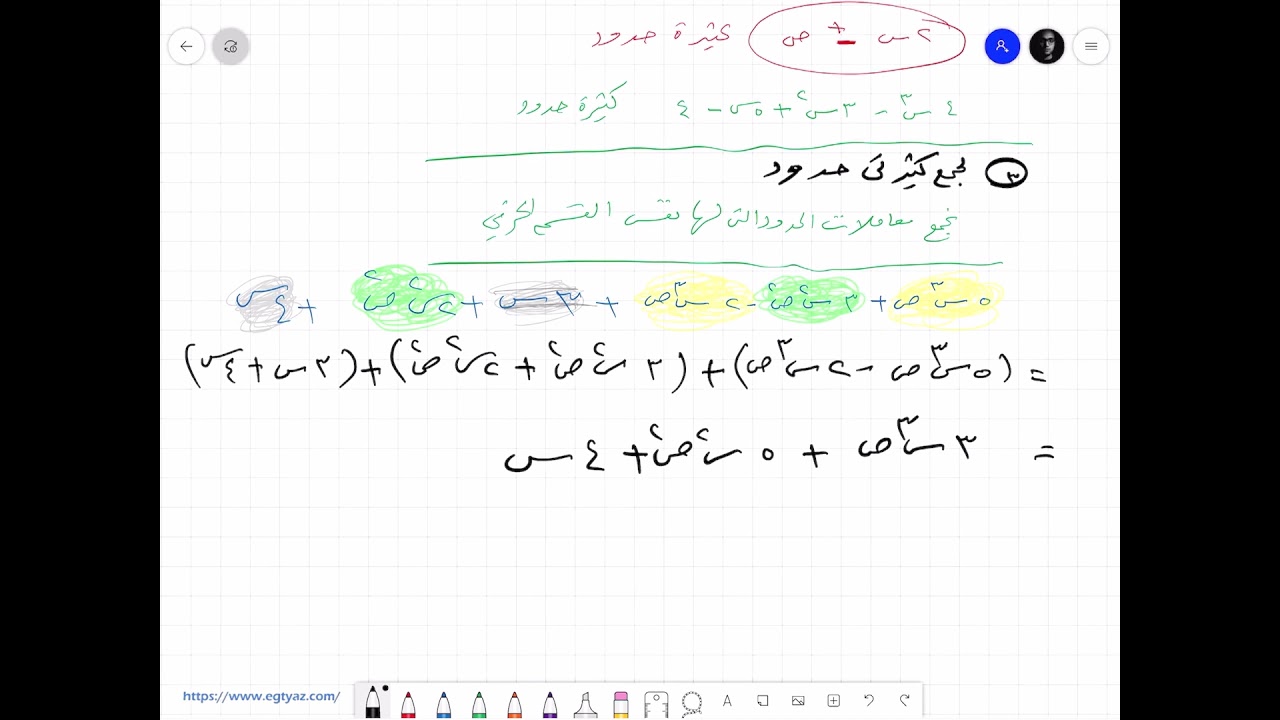 ٢س ± ص كثيرة حدود
٤س³ - ٣س² + ٥س - ٤ كثيرة حدود
٣ لجمع كثيرتى حدود
نجمع معاملات الحدود التى لها نفس القسم الحرفي
٥س³ص + ٣س²ص² - ٢س³ص + ٣س + ٢س²ص² + ٤س
= (٥س³ص - ٢س³ص) + (٣س²ص² + ٢س²ص²) + (٣س + ٤س)
= ٣س³ص + ٥س²ص² + ٤س
https://www.egtyaz.com/